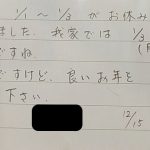 1/1～1/3 がお休み
ました。我家では 1/3
ですね。
ですけど、良いお年を
下さい。
12/15